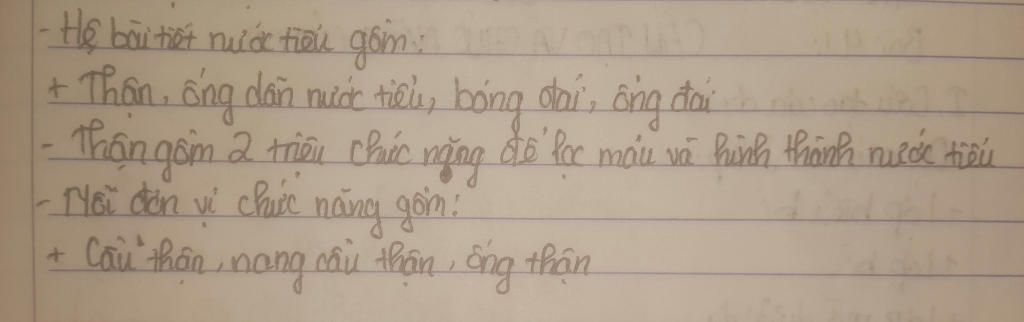 - Hệ bài tiết nước tiểu gồm:
+ Thận, ống dẫn nước tiểu, bóng đái, ống đái
- Thận gồm 2 triệu chức năng để lọc máu và hình thành nước tiểu
- Mỗi đơn vị chức năng gồm:
+ Cầu thận, nang cầu thận, ống thận